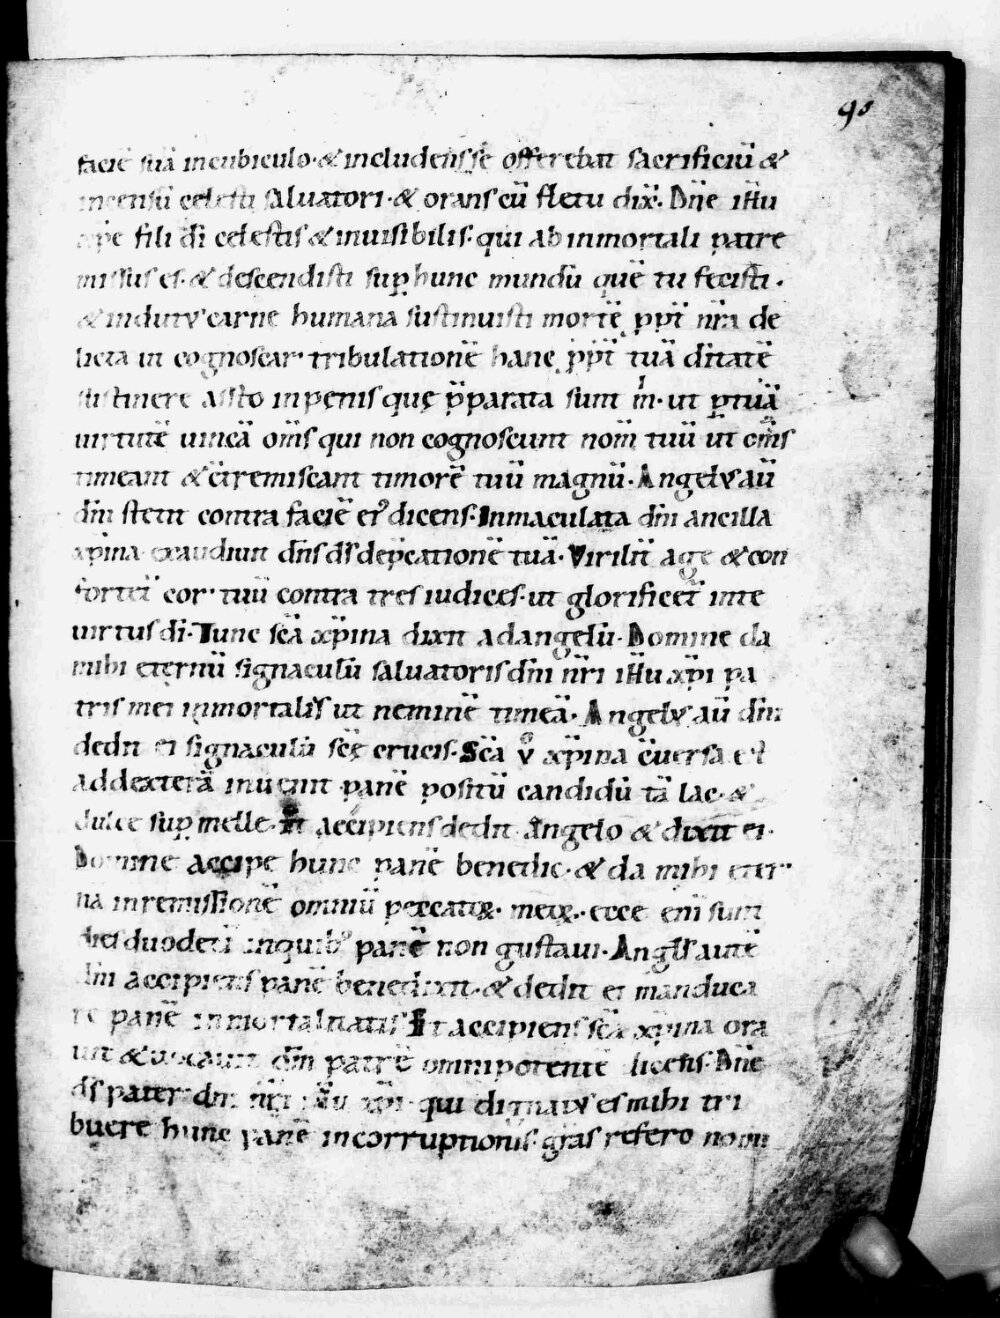 90
faciē suā incubiculo· & includens se offerebat sacrificiū &
incensū celesti saluatori· & orans cū fletu dix̄· Dn̄e ih̄u
xp̄e fili dī celestis & inuisibilis· qui ab inmortali patre
missus es· & descendisti sup hunc mundū quē tu fecisti·
& indut᾽ carne humana sustinuisti mortē pp̄t nr̄a de
licta in cognoscar· tribulationē hanc pp̄t tuā dītatē
sustinere assto inpenis quę p̄parata sunt m̄· ut ptuā
uirtutē uincā om̄s qui non cognoscunt nom̄ tuū ut om̄s
timeant & c̄tremiscant timorē tuū magnū· Angel᾽ aū
dn̄i stetit contra faciē ei᾽ dicens· Inmaculata dn̄i ancilla
xp̄ina exaudiuit dn̄s ds̄ dep̄cationē tuā· Virilit̄ age & con
fortet̄ cor· tuū contra tres iudices· ut glorificet̄ inte
uirtus dī· Tunc sc̄a xp̄ina dixit adangelū· Domine da
mihi eternū signaculū saluatoris dn̄i nr̄i ih̄u xp̄i pa
tris mei inmortalis ut neminē timeā· Angel᾽ aū dn̄i
dedit ei signaculū sc̄ę crucis· Sc̄a v̊ xp̄ina c̄uersa est
addexterā inuenit panē positū candidū tā lac· &
dulce sup melle· Et accipiens dedit Angelo & dixit ei·
Domine accipe hunc panē benedic· & da mihi eter
na inremissionē omniū peccatoꝝ meoꝝ· ecce eni sunt
dies duodeci inquib᾽ panē non gustaui· Angls̄ autē
dn̄i accipiens panē benedixit· & dedit ei manduca
re panē inmortalitatis Et accipiens sc̄a xp̄ina ora
uit & dn̄m patrē omnipotentē dicens· Dn̄e
ds̄ pater dn̄i nr̄i ih̄u xp̄i· qui dignat᾽ es mihi tri
buere hunc panē incorruptionis· gr̄as refero nomi